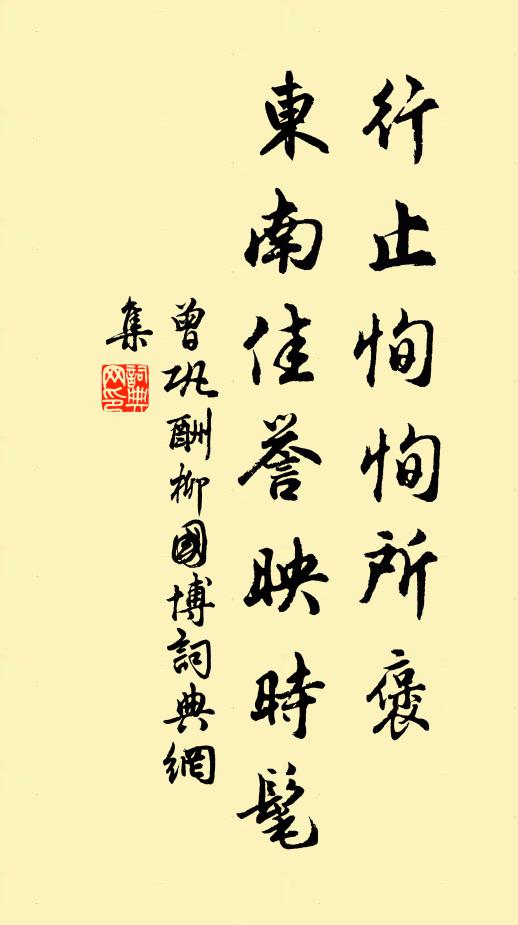 行止恂恂所褒
東南佳誉映時髦
曾巩酬柳國博詞典網
集
詞典
网印